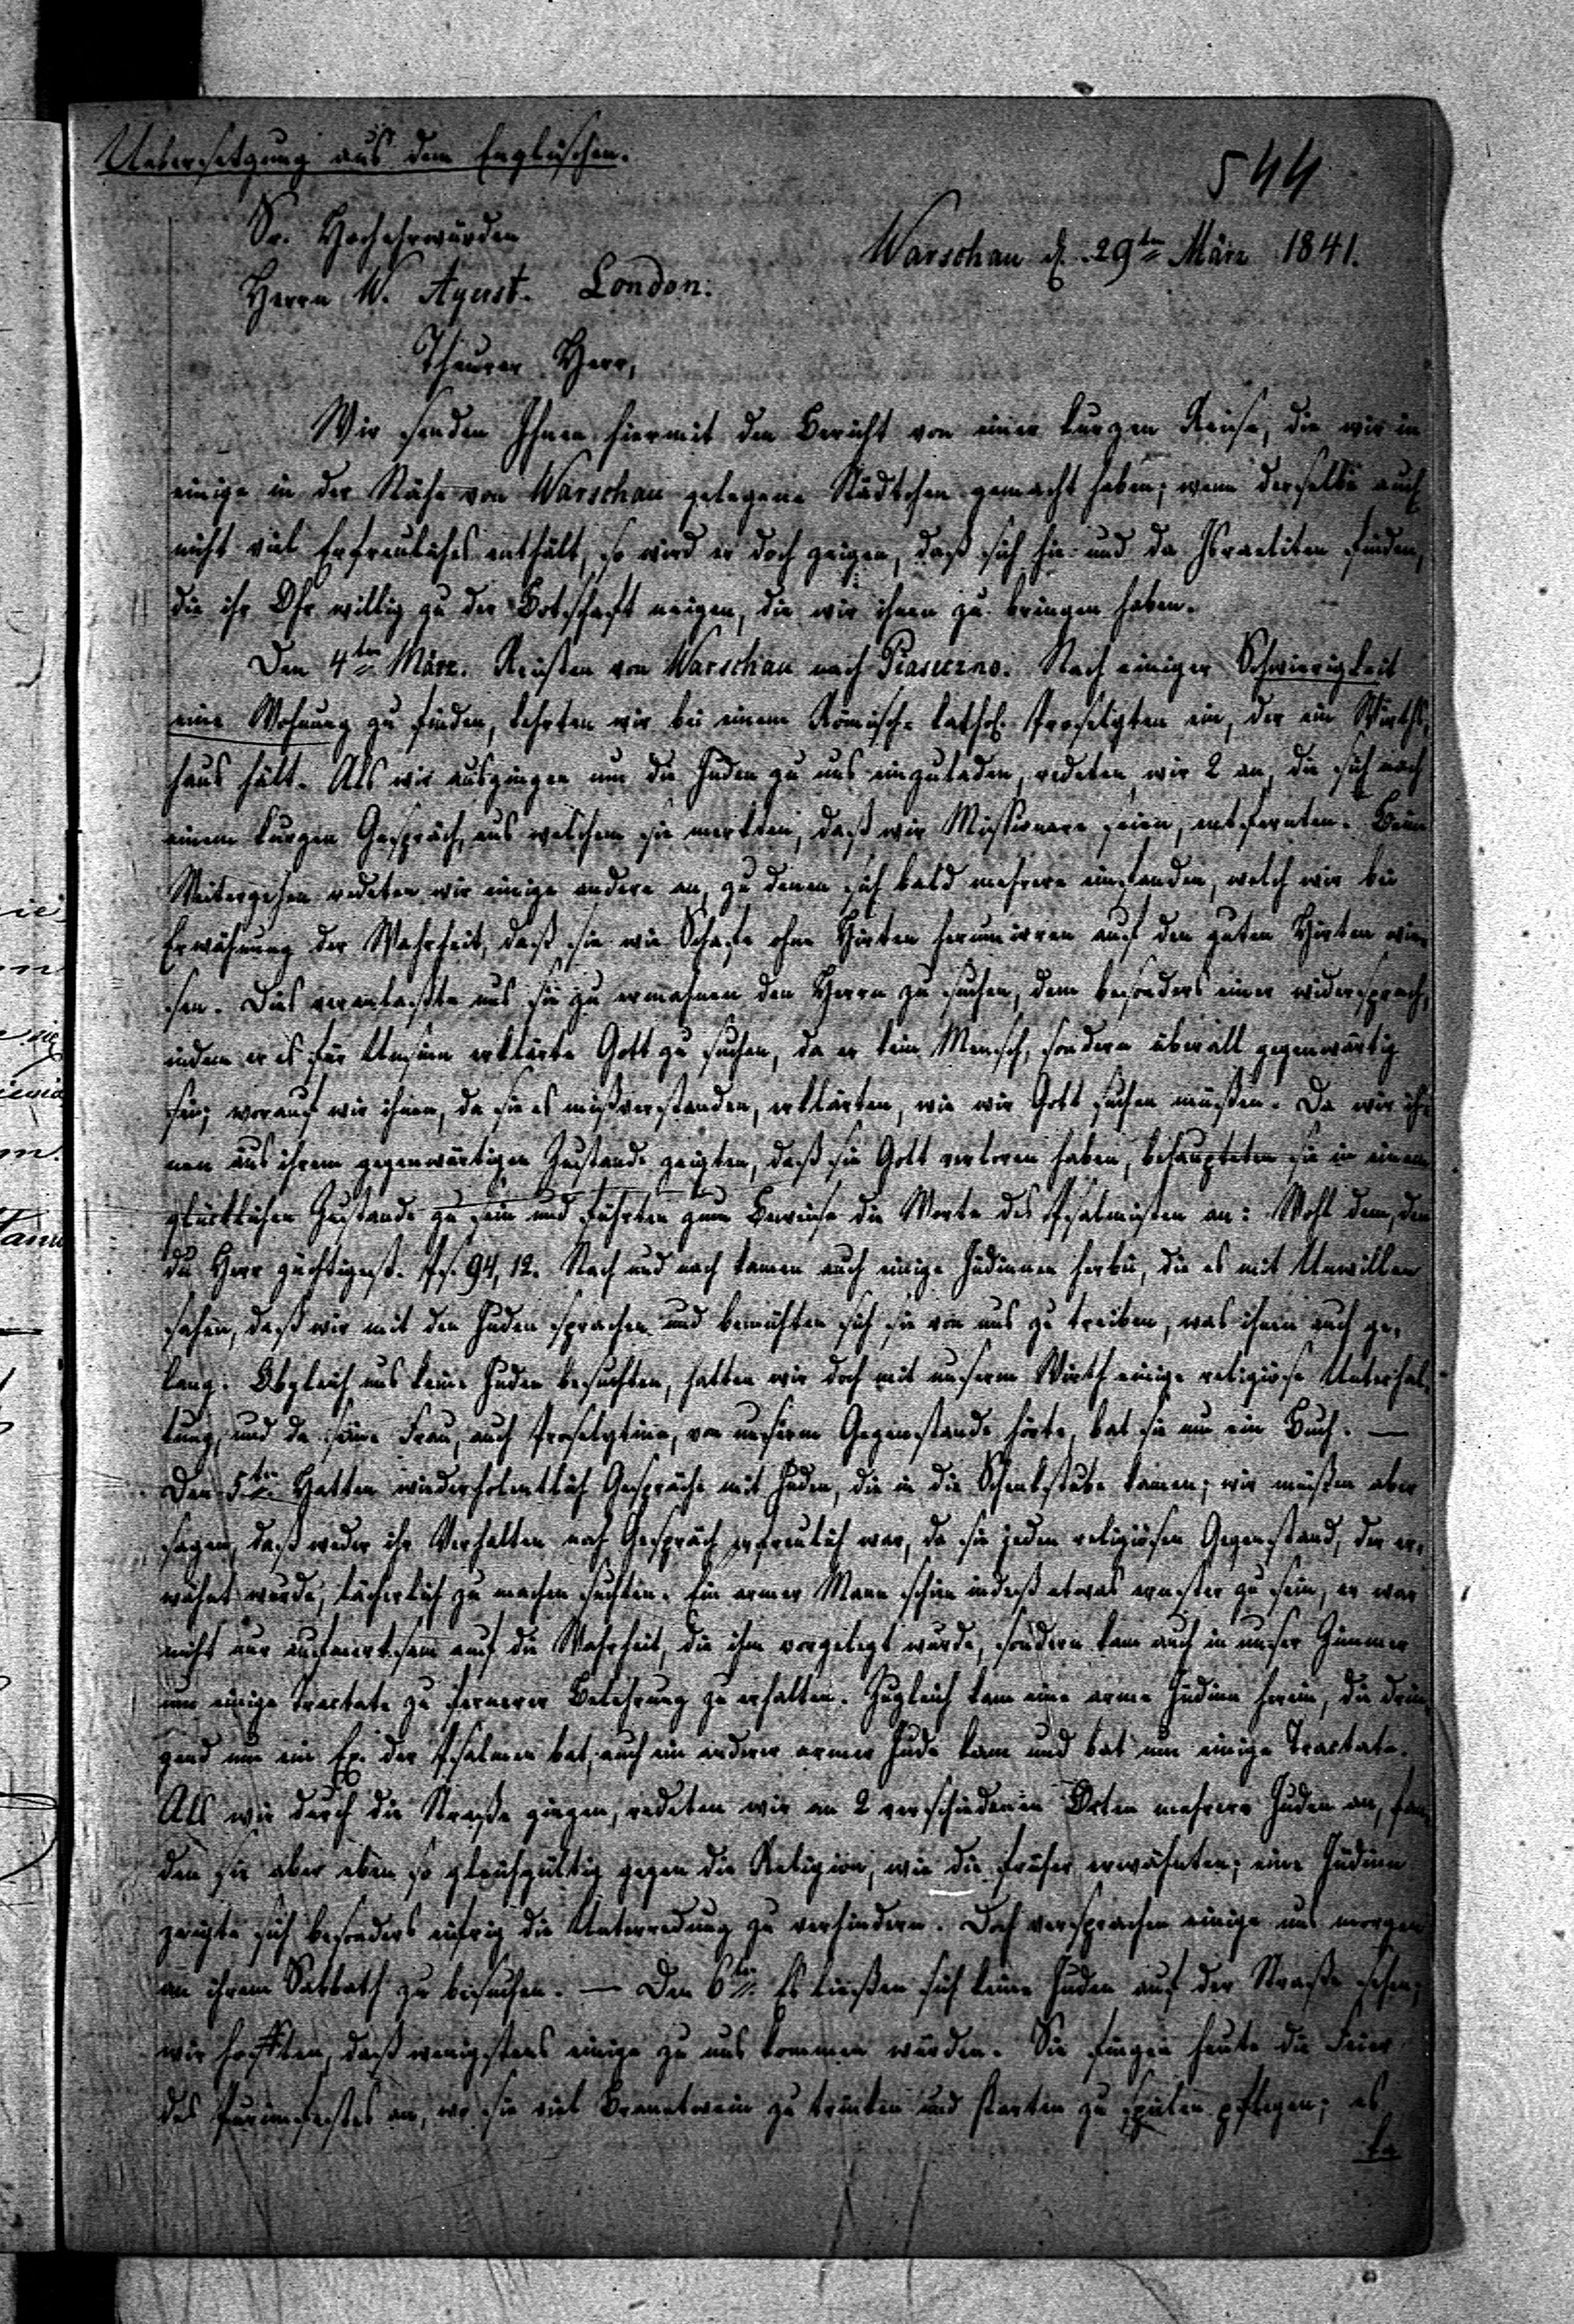 Uebersetzung aus dem Englischen.
544
Sr. Hochehrwürden
Warschau d. 29ten März 1841.
Herrn W. Ayerst. London.
Theurer Herr,
Wir senden Ihnen hiermit den Bericht von einer kurzen Reise, die wir in
einige in der Nähe von Warschau gelegene Städtchen gemacht haben; wenn derselbe auch
nicht viel Erfreuliches enthält, so wird er doch zeigen, daß sich hie und da Israeliten finden,
die ihr Ohr willig zu der Botschaft neigen, die wir ihnen zu bringen haben.
Den 4ten März. Reisten von Warschau nach Piaseczno. Nach einiger Schwierigkeit
eine Wohnung zu finden, kehrten wir bei einem Römisch-kathol. Proselyten ein, der ein Wirths-
haus hält. Als wir ausgingen um die Juden zu uns einzuladen, redeten wir 2 an, die sich nach
einem kurzen Gespräch, aus welchem sie merkten, daß wir Missionare seien, entfernten. Beim
Weitergehen redeten wir einige andere an, zu denen sich bald mehrere einfanden, welch wir bei
Erwähnung der Wahrheit, daß sie wie Schafe ohne Hirten herumirren auf den guten Hirten wie-
sen. Dies veranlaßte uns sie zu ermahnen den Herrn zu suchen, dem besonders einer widersprach,
indem er es für Unsinn erklärte Gott zu suchen, da er kein Mensch, sondern überall gegenwärtig
sei; worauf wir ihnen, da sie es mißverstanden, erklärten, wie wir Gott suchen müßen. Da wir ih-
nen aus ihrem gegenwärtigen Zustande zeigten, daß sie Gott verloren haben, behaupteten sie in einem
glücklichen Zustande zu sein und führten zum Beweise die Worte des Psalmisten an: Wohl dem, den
du Herr züchtigest. Ps. 94, 12. Nach und nach kamen auch einige Jüdinnen herbei, die es mit Unwillen
sahen, daß wir mit den Juden sprachen und bemühten sich sie von uns zu treiben, was ihnen auch ge-
lang. Obgleich uns keine Juden besuchten, hatten wir doch mit unserm Wirth einige religiöse Unterhal-
tung, und da seine Frau, auch Proselytinn, von unserm Gegenstande hörte, bat sie um ein Buch. —
Den 5ten Hatten wiederholentlich Gespräche mit Juden, die in die Schenkstube kamen; wir müßen aber
sagen, daß weder ihr Verhalten noch Gespräch erfreulich war, da sie jeden religiösen Gegenstand, der er-
wähnt wurde, lächerlich zu machen suchten. Ein armer Mann schien indeß etwas ernster zu sein, er war
nicht nur aufmerksam auf die Wahrheit, die ihm vorgelegt wurde, sondern kam auch in unser Zimmer
um einige Tractate zu fernerer Belehrung zu erhalten. Zugleich kam eine arme Jüdinn herein, die drin-
gend um ein Ex. der Psalmen bat; auch ein anderer armer Jude kam und bat um einige Tractate.
Als wir durch die Straße gingen, redeten wir an 2 verschiedenen Orten mehrere Juden an, fan-
den sie aber eben so gleichgültig gegen die Religion, wie die früher erwähnten; eine Jüdinn
zeigte sich besonders eifrig die Unterredung zu verhindern. Doch versprachen einige uns morgen
an ihrem Sabbath zu besuchen. — Den 6ten Es ließen sich keine Juden auf der Straße sehen;
wir hofften, daß wenigstens einige zu uns kommen würden. Sie fingen heute die Feier
des Purimfestes an, wo sie viel Branntwein zu trinken und Karten zu spielen pflegen; es